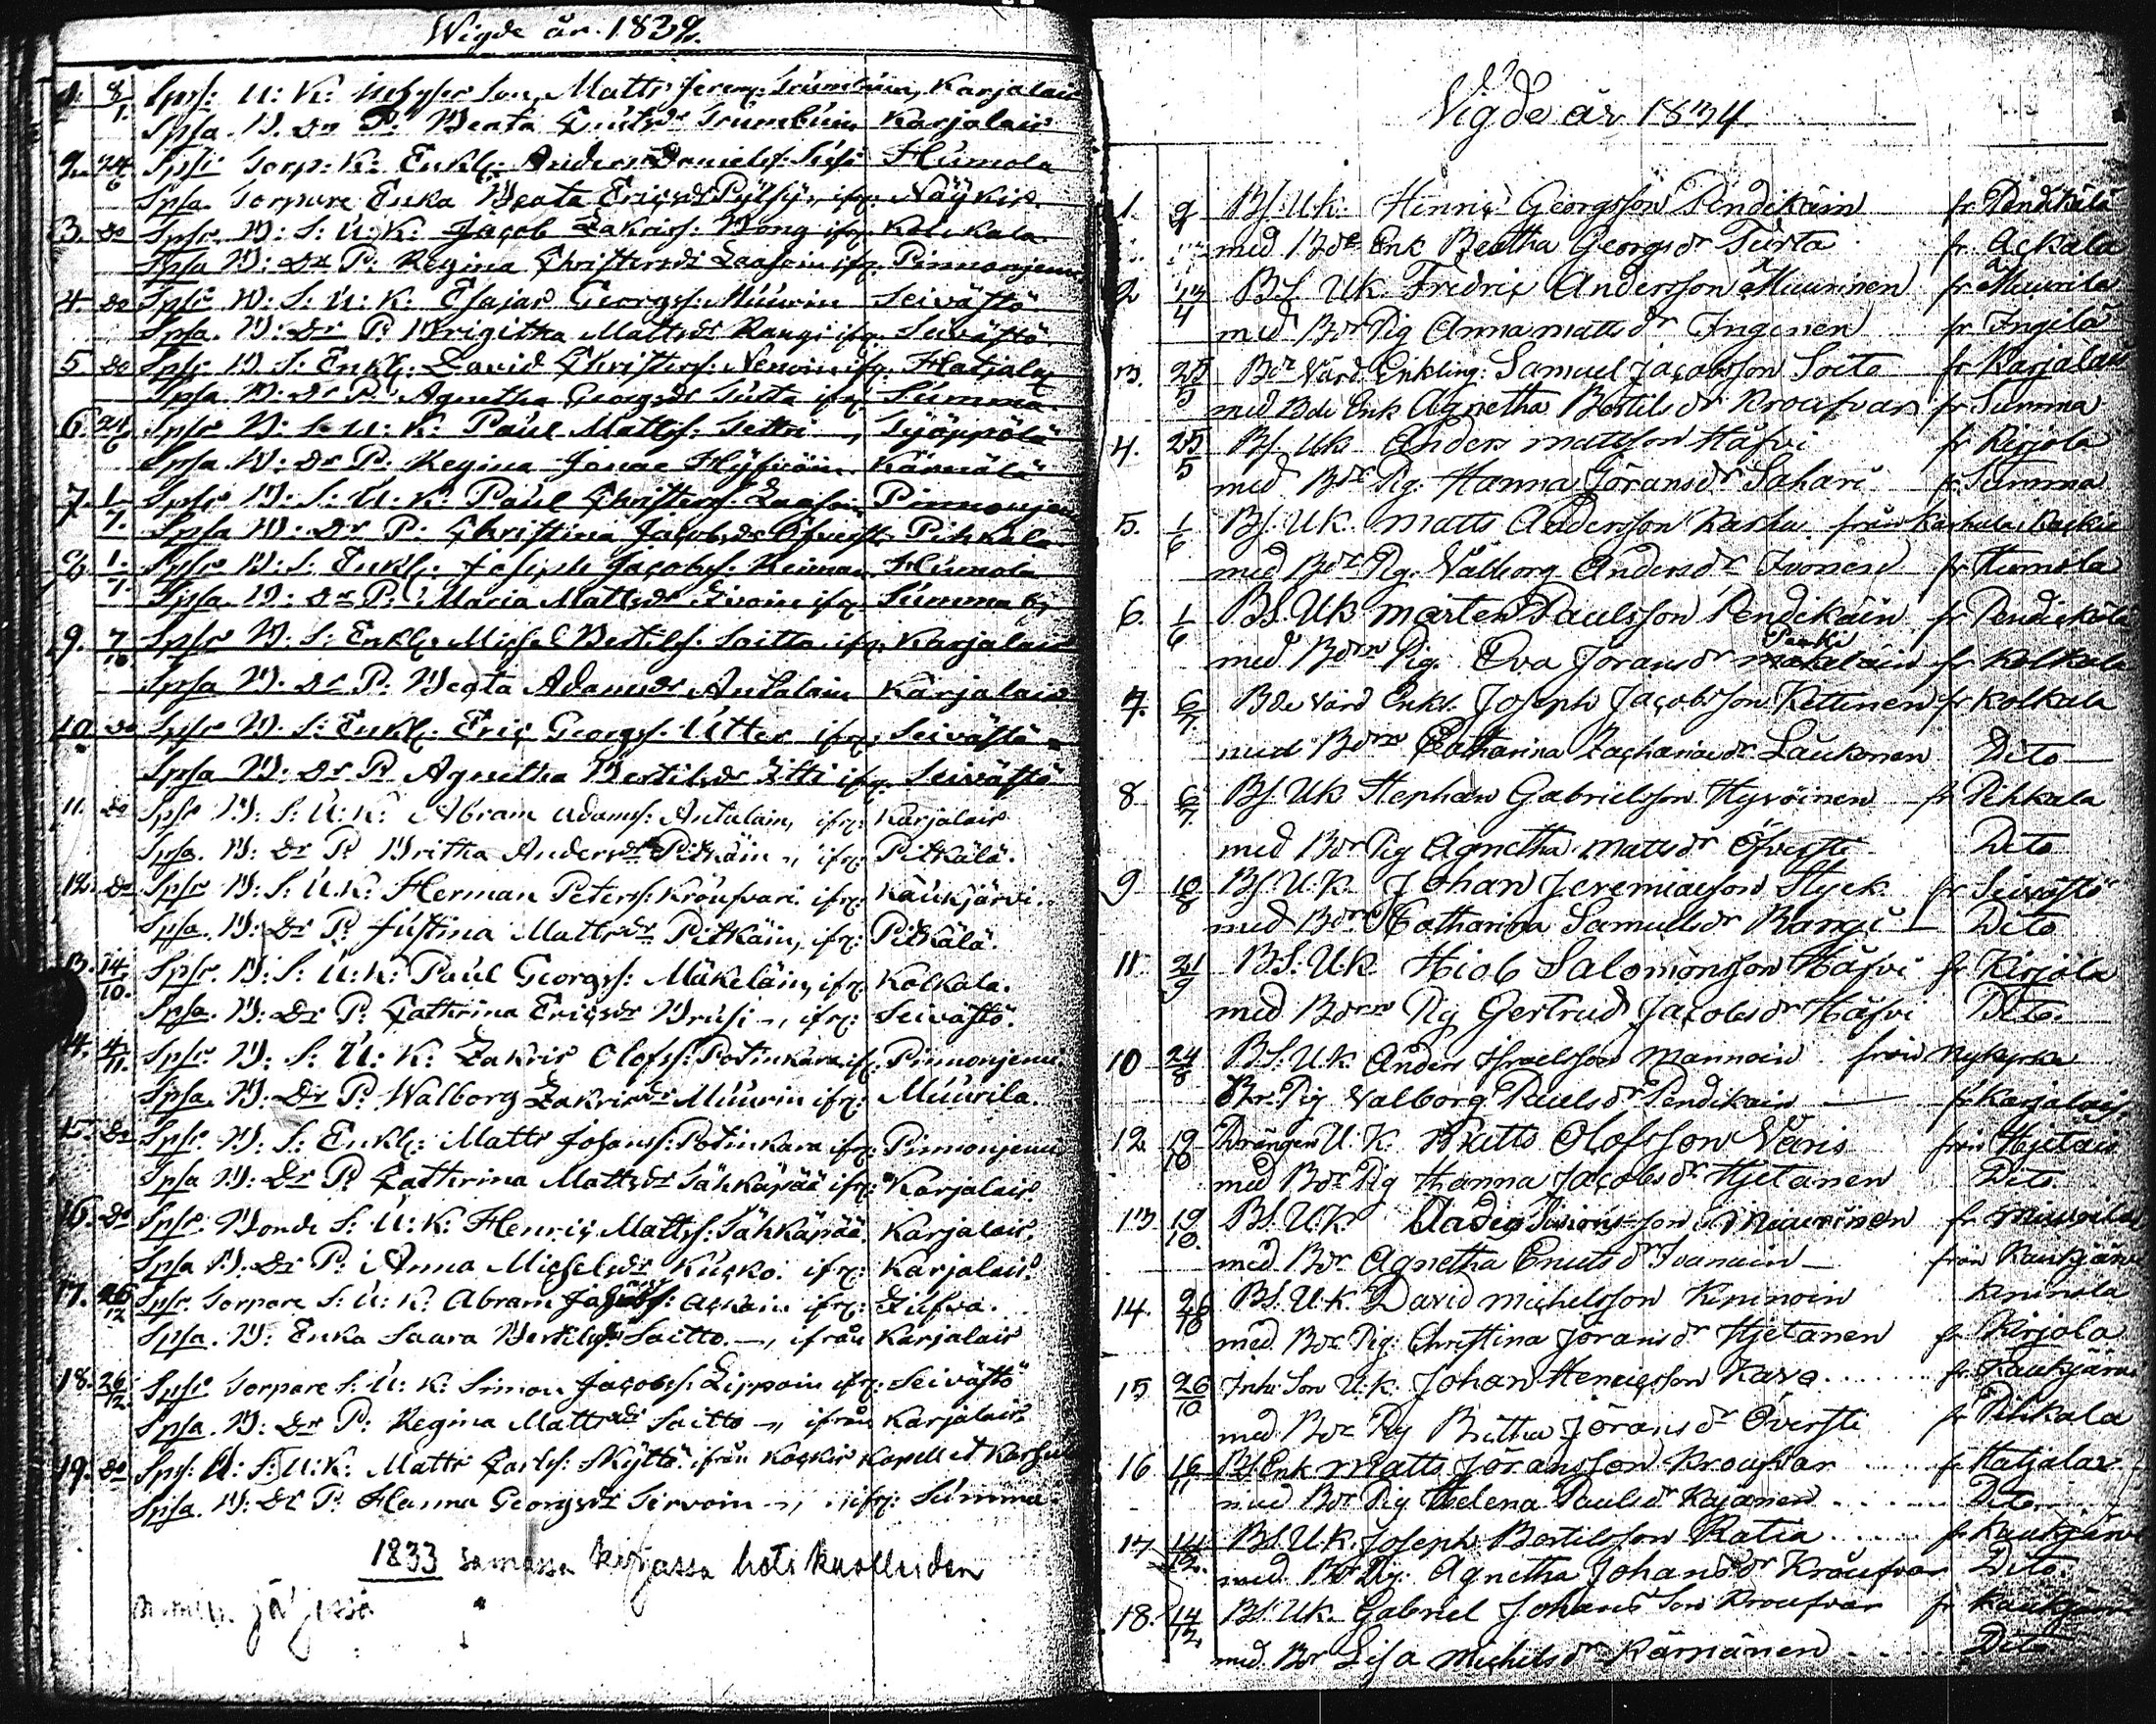 Wigde år 1832.
1. 8/1. Spsr: U: K: Son, Matts Jerem: Trumbuin, Karjalais
Spsa. B. Dr P: Beata Trumbuin Karjalais
2. 24/6 Spsr Torp: K: Enkl: Anders Daniels: Susi Humola
Spsa. Torpare Enka Beata Ericsdr Pylsy, ifr: Näykis.
3. Do Spsr B: S: U: K: Jacob Zakriss: Bong ifr: Kolkala.
Spsa B: Dr P: Regina Christersdr ifr: Pinnonjemi
4. Do Spsr B: S: U: K: Esajas Georgss: Muurin Seivästö.
Spsa. B: Dr P: Brigitha Mattsdr Rangi ifr: Seivästö
5 Do Spsr B S: Enkl: David Christers: ifr: Hatjala
Spsa B: Dr P: Agnetha Georgsdr Turta ifr: Summa.
6. 24/6 Spsr B: S: U: K: Paul Mattss: Tettri, Työppölä
Spsa. B: Dr P: Regina Jonae Hyfvöin Kärnälä
7. 1/7. Spsr B: S: U: K: Paul Christers: Pinnonjemi
Spsa B: Dr P: Christina Jacobsdr Öfverst: Pihkala
8 1/7. Spsr B: S: Enkl: Joseph Jacobss: Humola
Spsa. B: Dr P: Maria Mattsdr ifr: Summa by
9. 7/10 Spsr B: S: Enkl: Michel Bertilss: Saitto ifr: Karjalais
Spsa B: Dr P: Beata Adamsdr Antalain Karjalais
10. Do Spsr B: S: Enkl: Eric Georgss: Utter ifr: Seivästö
Spsa B: Dr P: Agnetha Bertilsdr Zitti ifr: Seivästö
11. Do Spsr B: S: U: K: Abram Adamss: Antalain, ifr: Karjalais
Spsa. B: Dr P: Britha Andersdr Pitkäin, ifr: Pitkälä.
12. Do Spsr B: S: U: K: Herman Peterss: Kroufvari ifr: Kaukjärvi.
Spsa. B: Dr P: Justina Mattsdr Pitkäin, ifr: Pitkälä.
13. 14/10. Spsr. B: S: U: K: Paul Georgss: Mäkeläin, ifr: Kolkala.
Spsa. B: Dr P: Cathrina Ericsdr Brusi, ifr: Seivästö.
14. 4/11. Spsr. B: S: U: K: Zakris Olofss: Potinkara ifr: Pinnonjemi
Spsa. B: Dr P: Walborg Zakrisdr Muurin ifr: Muurila.
15. Do Spsr. B: S: Enkl: Matts Johanss: Potinkara ifr: Pinnonjemi
Spsa B: Dr P: Cathrina Mattsdr Sähkäpää ifr: Karjalais
16. Do Spsr. Bonde S: U: K: Henric Mattss: Sähkäpää. Karjalais.
Spsa B: Dr P: Anna Michelsdr Kucko. ifr: Karjalais.
17. 26/12 Spsr. Torpare S: U: K: Abram ifr:
Spsa. B: Enka Saara Bertilsdr Saitto, ifrån Karjalais
18. 26/12. Spsr Torpare S: U: K: Simon Jacobss: Lippoin ifr: Seivästö
Spsa. B: Dr P: Regina Mattsdr Saitto, ifrån Karjalais
19. Do Spsr: B: S: U: K: Matts Carlss: Skyttä ifrån Kockis Kapell
Spsa. B: Dr P: Hanna Georgsdr Sirvoin, ifr: Summa.
1833 samassa kirjassa heti kuolleiden
järjessä

Vigde år 1834.
1. 9 BS: Uk: Henric Georgsson Pendikäin fr Pendikälä
med Bde Enk Beatha Georgsdr Turta fr. Ackala
2 13/4 BS. Uk. Fredric Andersson Muurinen fr Muurila
med Bdr Pig Anna mattsdr Inginen fr. Ingilä
3. 25/5 Bdr Värd Enkling: Samuel Jacobsson Soito fr Karjalais
med Bde Enk Agnetha Bertilsdr Kroufvar fr Summa
4. 25/5 BS. Uk Anders mattsson Häfvi fr Kirjola
med Bdr Pig. Hanna Göransdr Sahari fr Summa
5. 1/6 BS. Uk. Matts Andersson Karhu från
med Bdr Pig. Valborg Andersdr Ivonen fr Humola
6. 1/6 BS. Uk Mårten Paulsson Pendikäin fr Pendikälä
med Bdrn Pig. Eva Joransdr fr Kolkala
7. 6/7. Bde Värd Enkl. Joseph Jacobsson Kettinen fr Kolkala
med Bdrn Catharina Zachariaedr Laukonen Dito
8 6/7. BS. Uk Stephan Gabrielsson Hyvöinen fr Pihkala
med Bdr Pig Agnetha mattsdr Öfversti Dito
9 10/8 BS. U. K. Johan Jeremiaeson Styck fr Seivästö
med Bdrn Catharina Samuelsdr Rangi Dito
11 21/9 BS. U. K Hiob Salomonsson Häfvi fr Kirjola
med Bdrn Pig Gertrud Jacobsdr Häfvi Dito.
10 24/8 BS. U. K. Anders Israelsson Mannoin från Nykyrka
Bdr. Pig Valborg Paulsdr Pendikain fr Karjalais.
12. 19/10 Drängen U. K. Matts Olofsson Varis från Hjetais
med Bdr Pig Hanna Jacobsdr Hjetanen Dito
13 19/10. BS. U. K. Muurinen fr Muurila
med Bdr. Agnetha Cnutsdr Ivanain från Kaukjärvi
14. 26/10 BS. U. K. David Michelsson Kininoin Kininola
med Bdr Pig. Christina Joransdr Hjetanen fr Kirjola
15 26/10 Inh. Son U. K. Johan Henricsson Karva fr. Kaukjärvi
med Bdr Pig Britha Joransdr Översti fr Pihkala
16 16/11 BS. Enk Matts Joransson Kroufvar fr Hatjalax
med Bdr Pig Helena Paulsdr Kajanen Dito
17 14/12. BS. U. K. Joseph Bertilsson Ratia fr Kaukjärvi
med. Bdr Pig. Agnetha Johansdr Kroufvar Dito.
18. 14/12. BS. Uk. Gabriel Johans Son Kroufvar fr Kaukjärvi
med. Bdr Lisa Michelsdr Kärnänen Dito